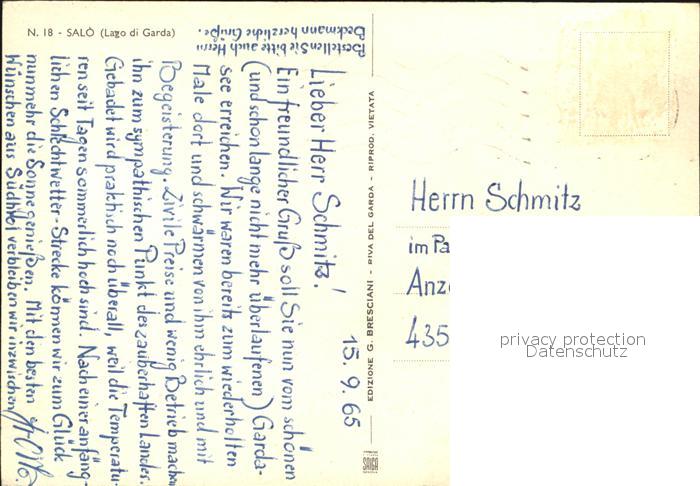 N. 18 - SALÒ (Lago di Garda)
15. 9. 65
Lieber Herr Schmitz!
Ein freundlicher Gruß soll Sie nun vom schönen
(und schon lange nicht mehr überlaufenen) Garda-
see erreichen. Wir waren bereits zum wiederholten
Male dort und schwärmen von ihm ehrlich und mit
Begeisterung. Zivile Preise und wenig Betrieb machen
ihn zum sympathischen Punkt des zauberhaften Landes.
Gebadet wird praktisch noch überall, weil die Temperatu-
ren seit Tagen sommerlich hoch sind. Nach einer anfäng-
lichen Schlechtwetter-Strecke können wir zum Glück
nunmehr die Sonne genießen. Mit den besten
Wünschen aus Südtirol verbleiben wir inzwischen
Bestellen Sie bitte auch Herrn
Beckmann herzliche Grüße.
EDIZIONE G. BRESCIANI - RIVA DEL GARDA - RIPROD. VIETATA
Herrn Schmitz
im Pa
Anz
435
privacy protection
Datenschutz